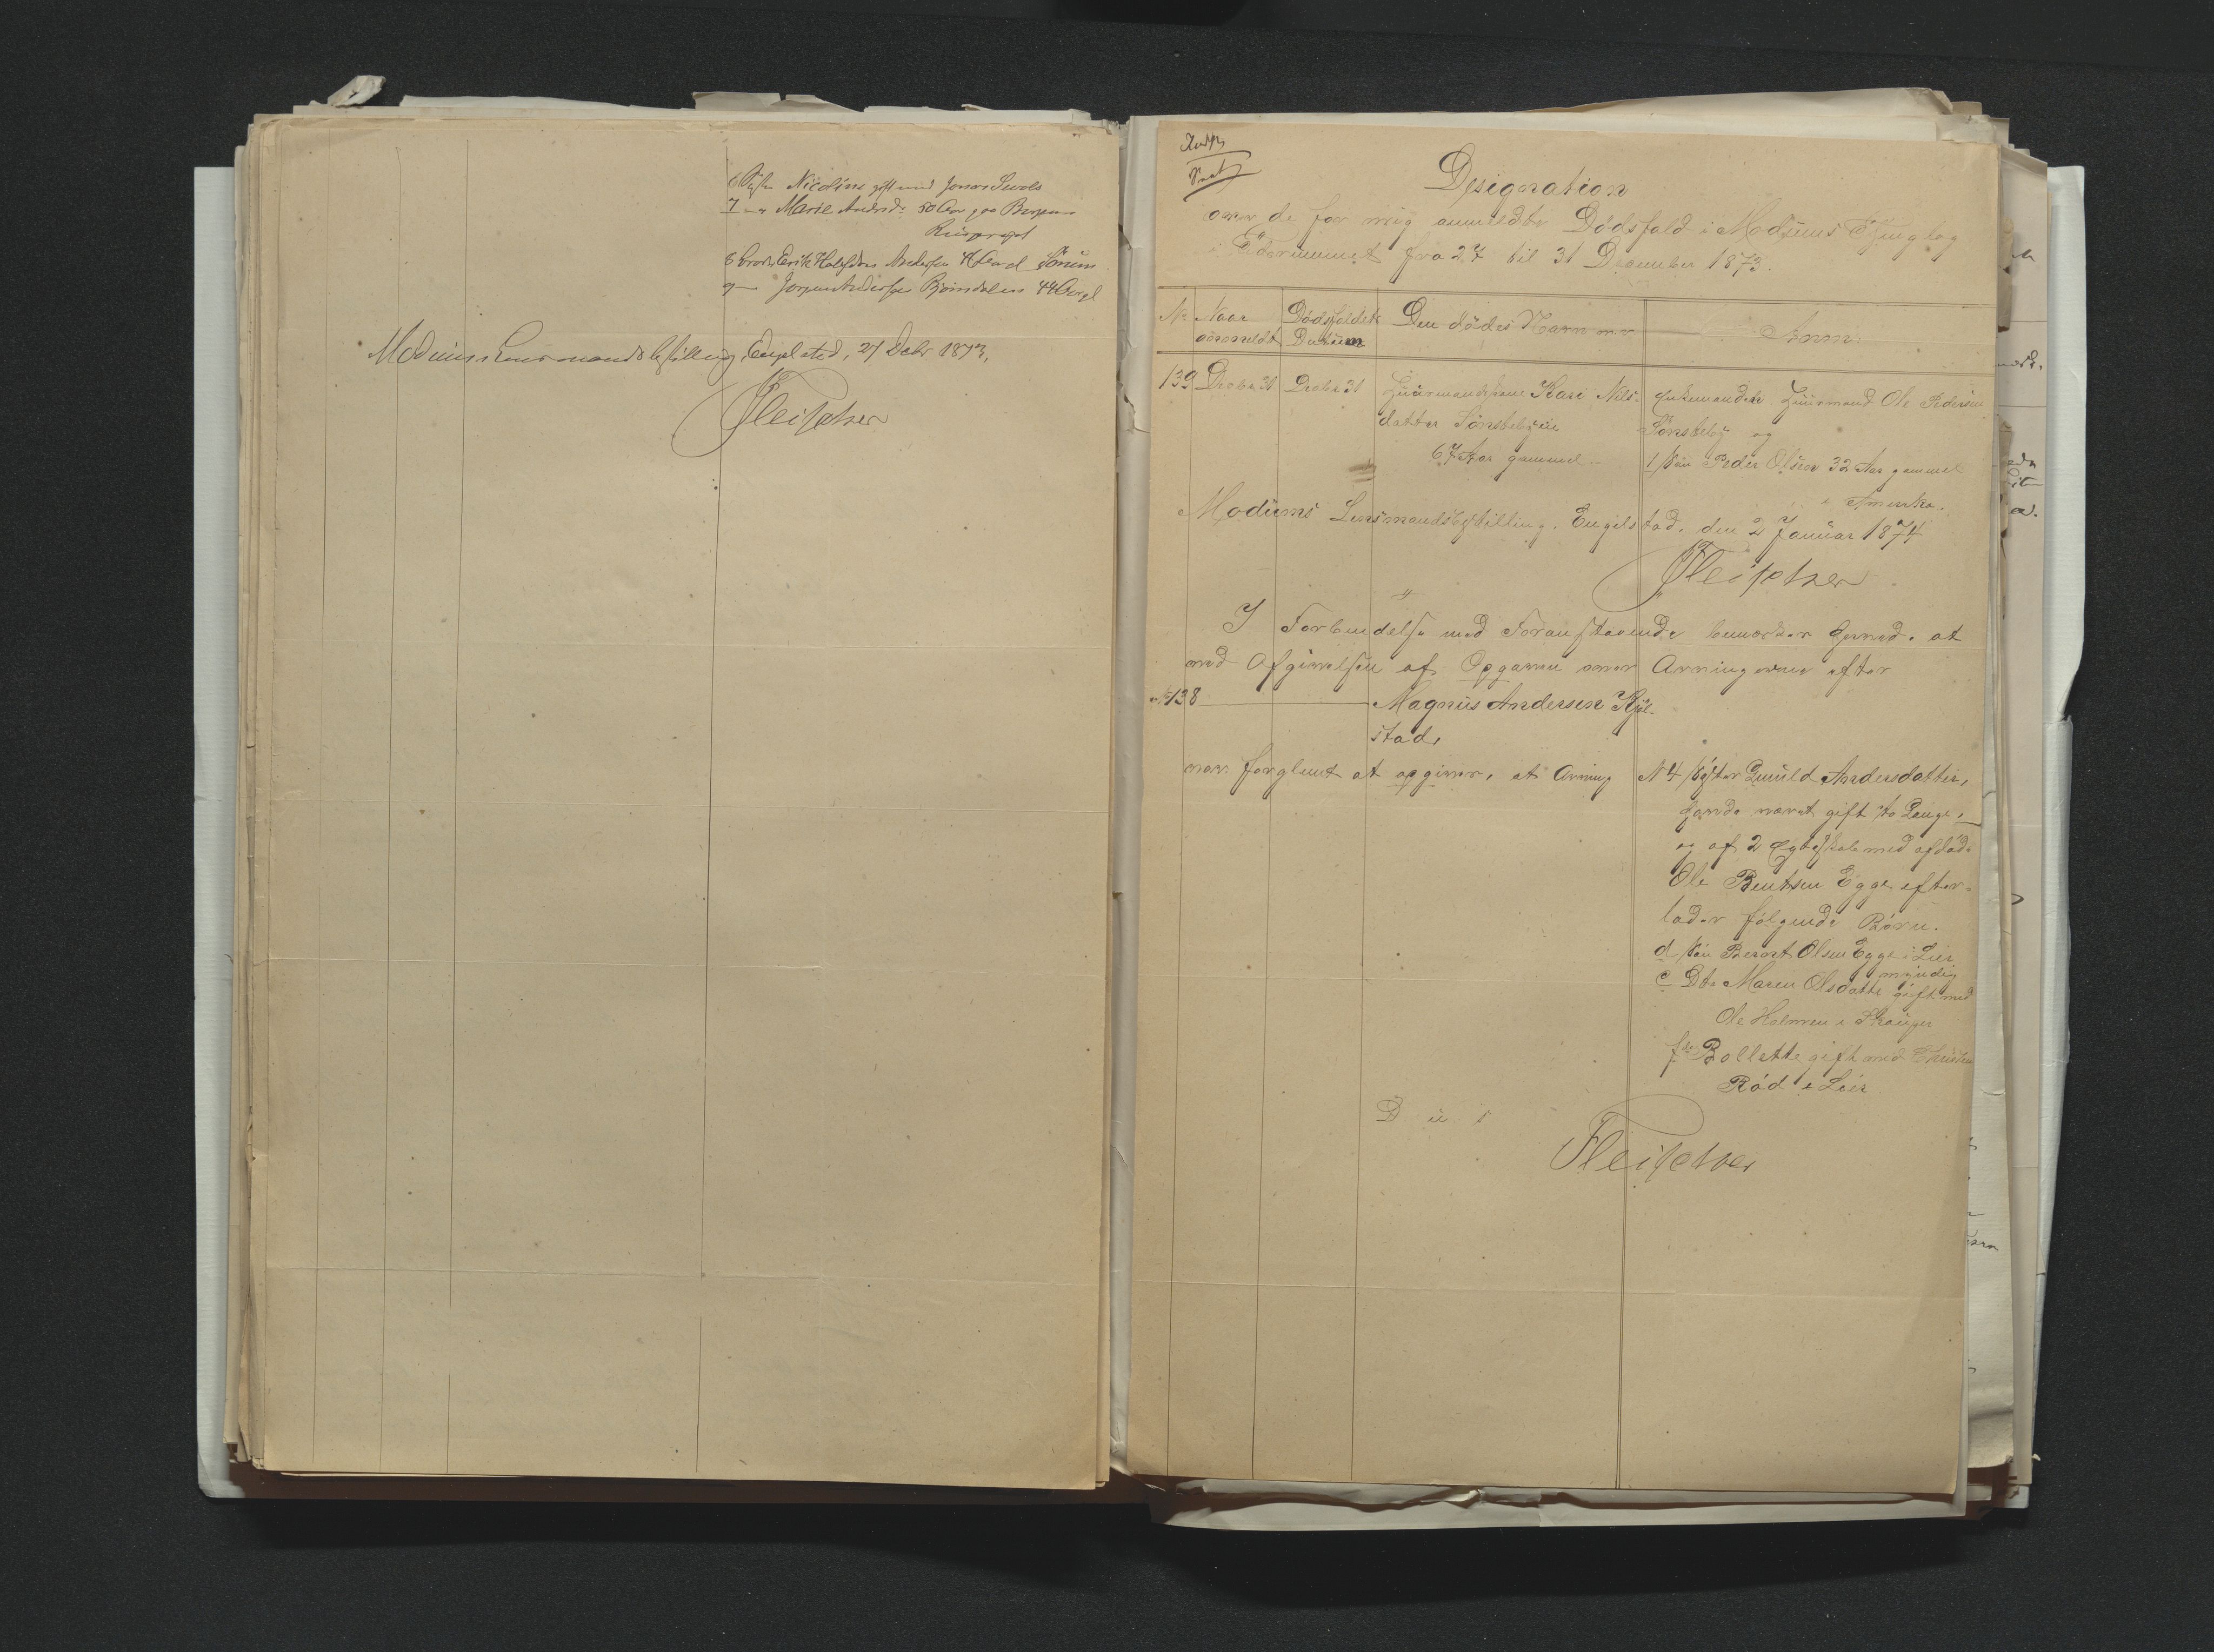 6 Søster Nicoline gift med Jonas
7 — Marie Andersd: 50 Aar paa
8 Broder Erik Andersen Aar gl
9 — Jørgen Andersen Bjørndalen 44 Aar gl
Modums Lensmandsbestilling, Engelstad, 27 Decbr 1873.
Fleischer
Designation
over de for mig anmeldte Dødsfald i Modums Thinglag
i Tidsrummet fra 27 til 31 December 1873.
No Naar anmeldt Dødsfaldets Datum Den dødes Navn mv
139 Decbr 31 Decbr 31 Huusmandskone Kari Nils-
datter
67 Aar gammel.
Enkemanden Huusmand Ole Pedersen
og
1/ Søn Peder Olsen 32 Aar gammel
i Amerika.
Modums Lensmandsbestilling, Engelstad, den 2 Januar 1874
Fleischer
I Forbindelse med Foranstaaende bemærkes herved, at
ved Afgivelsen af Opgaven over Arvingerne efter
No 138 Magnus Andersen Kjøl-
stad,
var forglemt at opgives, at Arving
N 4/ Søster Gunild Andersdatter,
havde været gift to Gange,
og af 2 Ægteskab med afdøde
Ole Bentsen Egge efter-
lader følgende Børn.
d/ Søn Berent Olsen Egge i Lier
myndig
e Dtr Maren Olsdatter gift med
Ole Holmen i
f do Bollette gift med
Rød i Lier
D u s
Fleischer